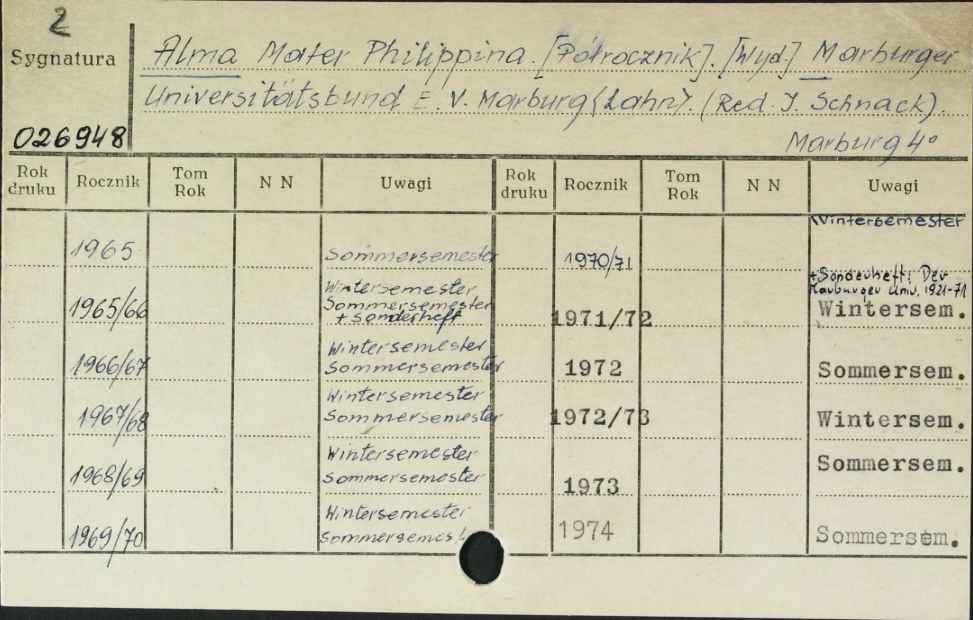 2
Sygnatura
Alma Mater Philippina. [Półrocznik]. [Wyd.] Marburger
Universitätsbund E. V. Marburg {Lahn}. (Red. I. Schnack).
026948
Marburg 4°
Rok druku Rocznik Tom Rok N N Uwagi Rok druku Rocznik Tom Rok N N Uwagi
1965 Sommersemester
1965/66 Wintersemester
Sommersemester
+ Sonderheft
1966/67 Wintersemester
Sommersemester
1967/68 Wintersemester
Sommersemester
1968/69 Wintersemester
Sommersemester
1969/70 Wintersemester
Sommersemest
1970/71 Wintersemester
+ Sonderheft: Der
Marburger Univ. 1921-71
1971/72 Wintersem.
1972 Sommersem.
1972/73 Wintersem.
1973 Sommersem.
1974 Sommersem.